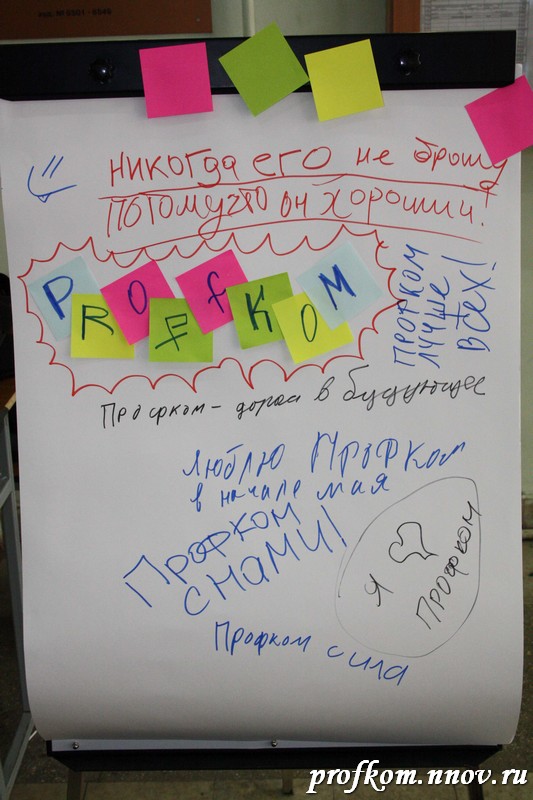 НИКОГДА ЕГО не брошу
ПОТОМУЧТО он хороший.
PROFFKOM
ПРОФКОМ
ЛУЧШЕ
ВСЕХ!
Профком - дорога в будующее
люблю Профком
в начале мая
Профком
с нами!
Я
Профком
Профком сила
profkom.nnov.ru